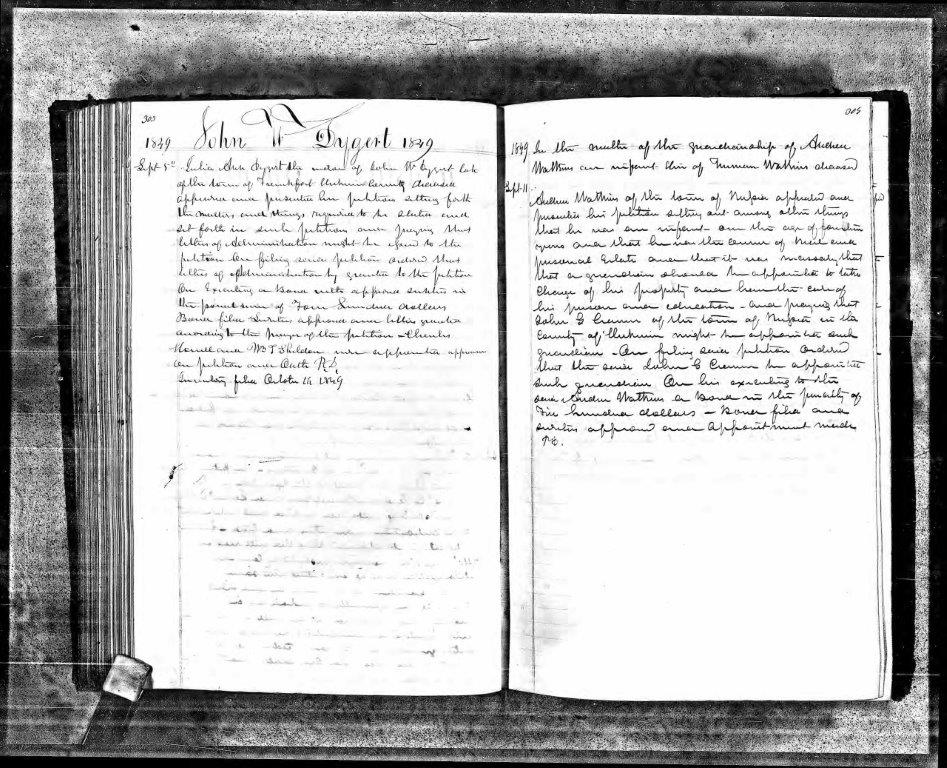 303
1849 John W Dygert 1849
Sept 5th Julia Ann Dygert the widow of John W Dygert late
of the town of Frankfort Herkimer County deceased
appeared and presented her petition setting forth
the matters and things required to be stated and
set forth in such petitions and praying that
letters of Administration might be issued to the
petitioner On filing said petition ordered that
letters of Administration be granted to the petitioner
On Executing a Bond with approved sureties in
the penal sum of Four hundred dollars
Bond filed Sureties approved and letters granted
according to the prayer of the petition - Charles
and Wm T Sheldon were appointed appraisers
on petition and Oath
Inventory filed October 16 1849
305
1849 In the matter of the guardianship of Andrew
Mathias an infant of deceased
Sept 11
Andrew Mathias of the town of appeared and
presented his petition setting out among other things
that he was an infant over the age of fourteen
years and that he was the owner of real and
personal Estate and that it was necessary that
that a guardian should be appointed to take
Charge of his property and have the care of
his person and education - and praying that
John C of the town of in the
County of Herkimer might be appointed such
guardian - On filing said petition Ordered
that the said John C be appointed
such guardian On his executing to the
said Andrew Mathias a Bond in the penalty of
hundred dollars - Bond filed and
sureties approved and Appointment made
&c.